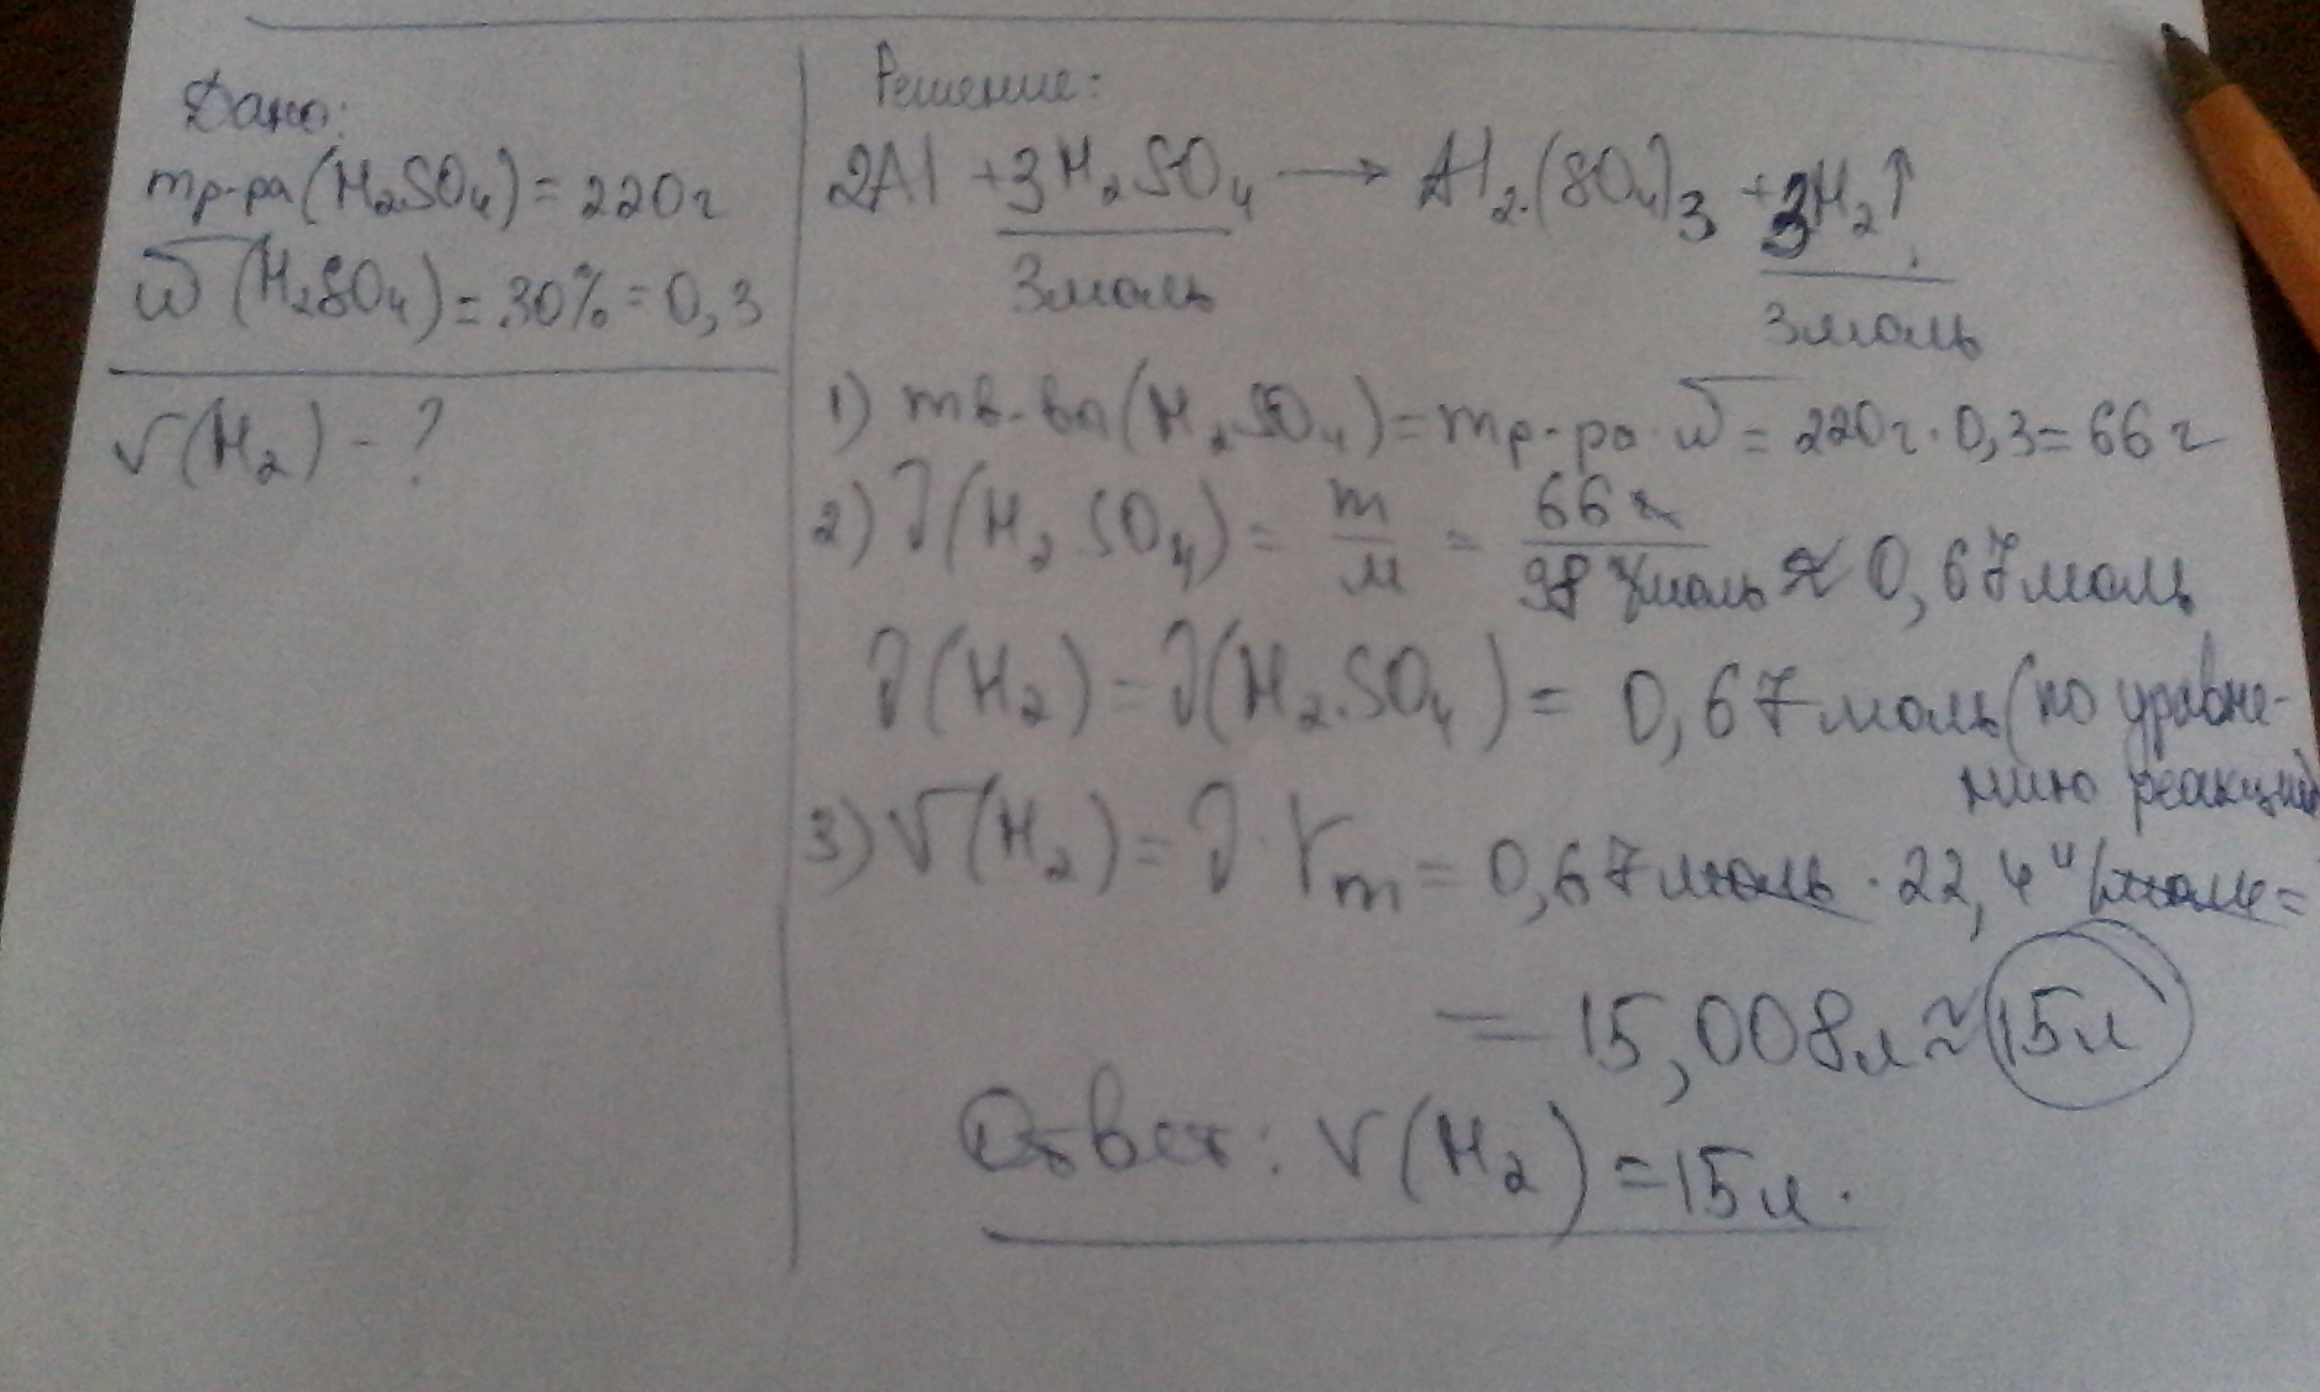 Дано:
mр-ра(H₂SO₄) = 220г
w(H₂SO₄) = 30% = 0,3
V(H₂) - ?
Решение:
2Al + 3H₂SO₄ → Al₂(SO₄)₃ + 3H₂↑
3моль 3моль
1) mв-ва(H₂SO₄) = mр-ра · w = 220г · 0,3 = 66г
2) ν(H₂SO₄) = m/M = 66г/98г/моль ≈ 0,67моль
ν(H₂) = ν(H₂SO₄) = 0,67моль (по уравне-
нию реакции)
3) V(H₂) = ν · Vm = 0,67моль · 22,4л/моль =
= 15,008л ≈ 15л
Ответ: V(H₂) = 15л.